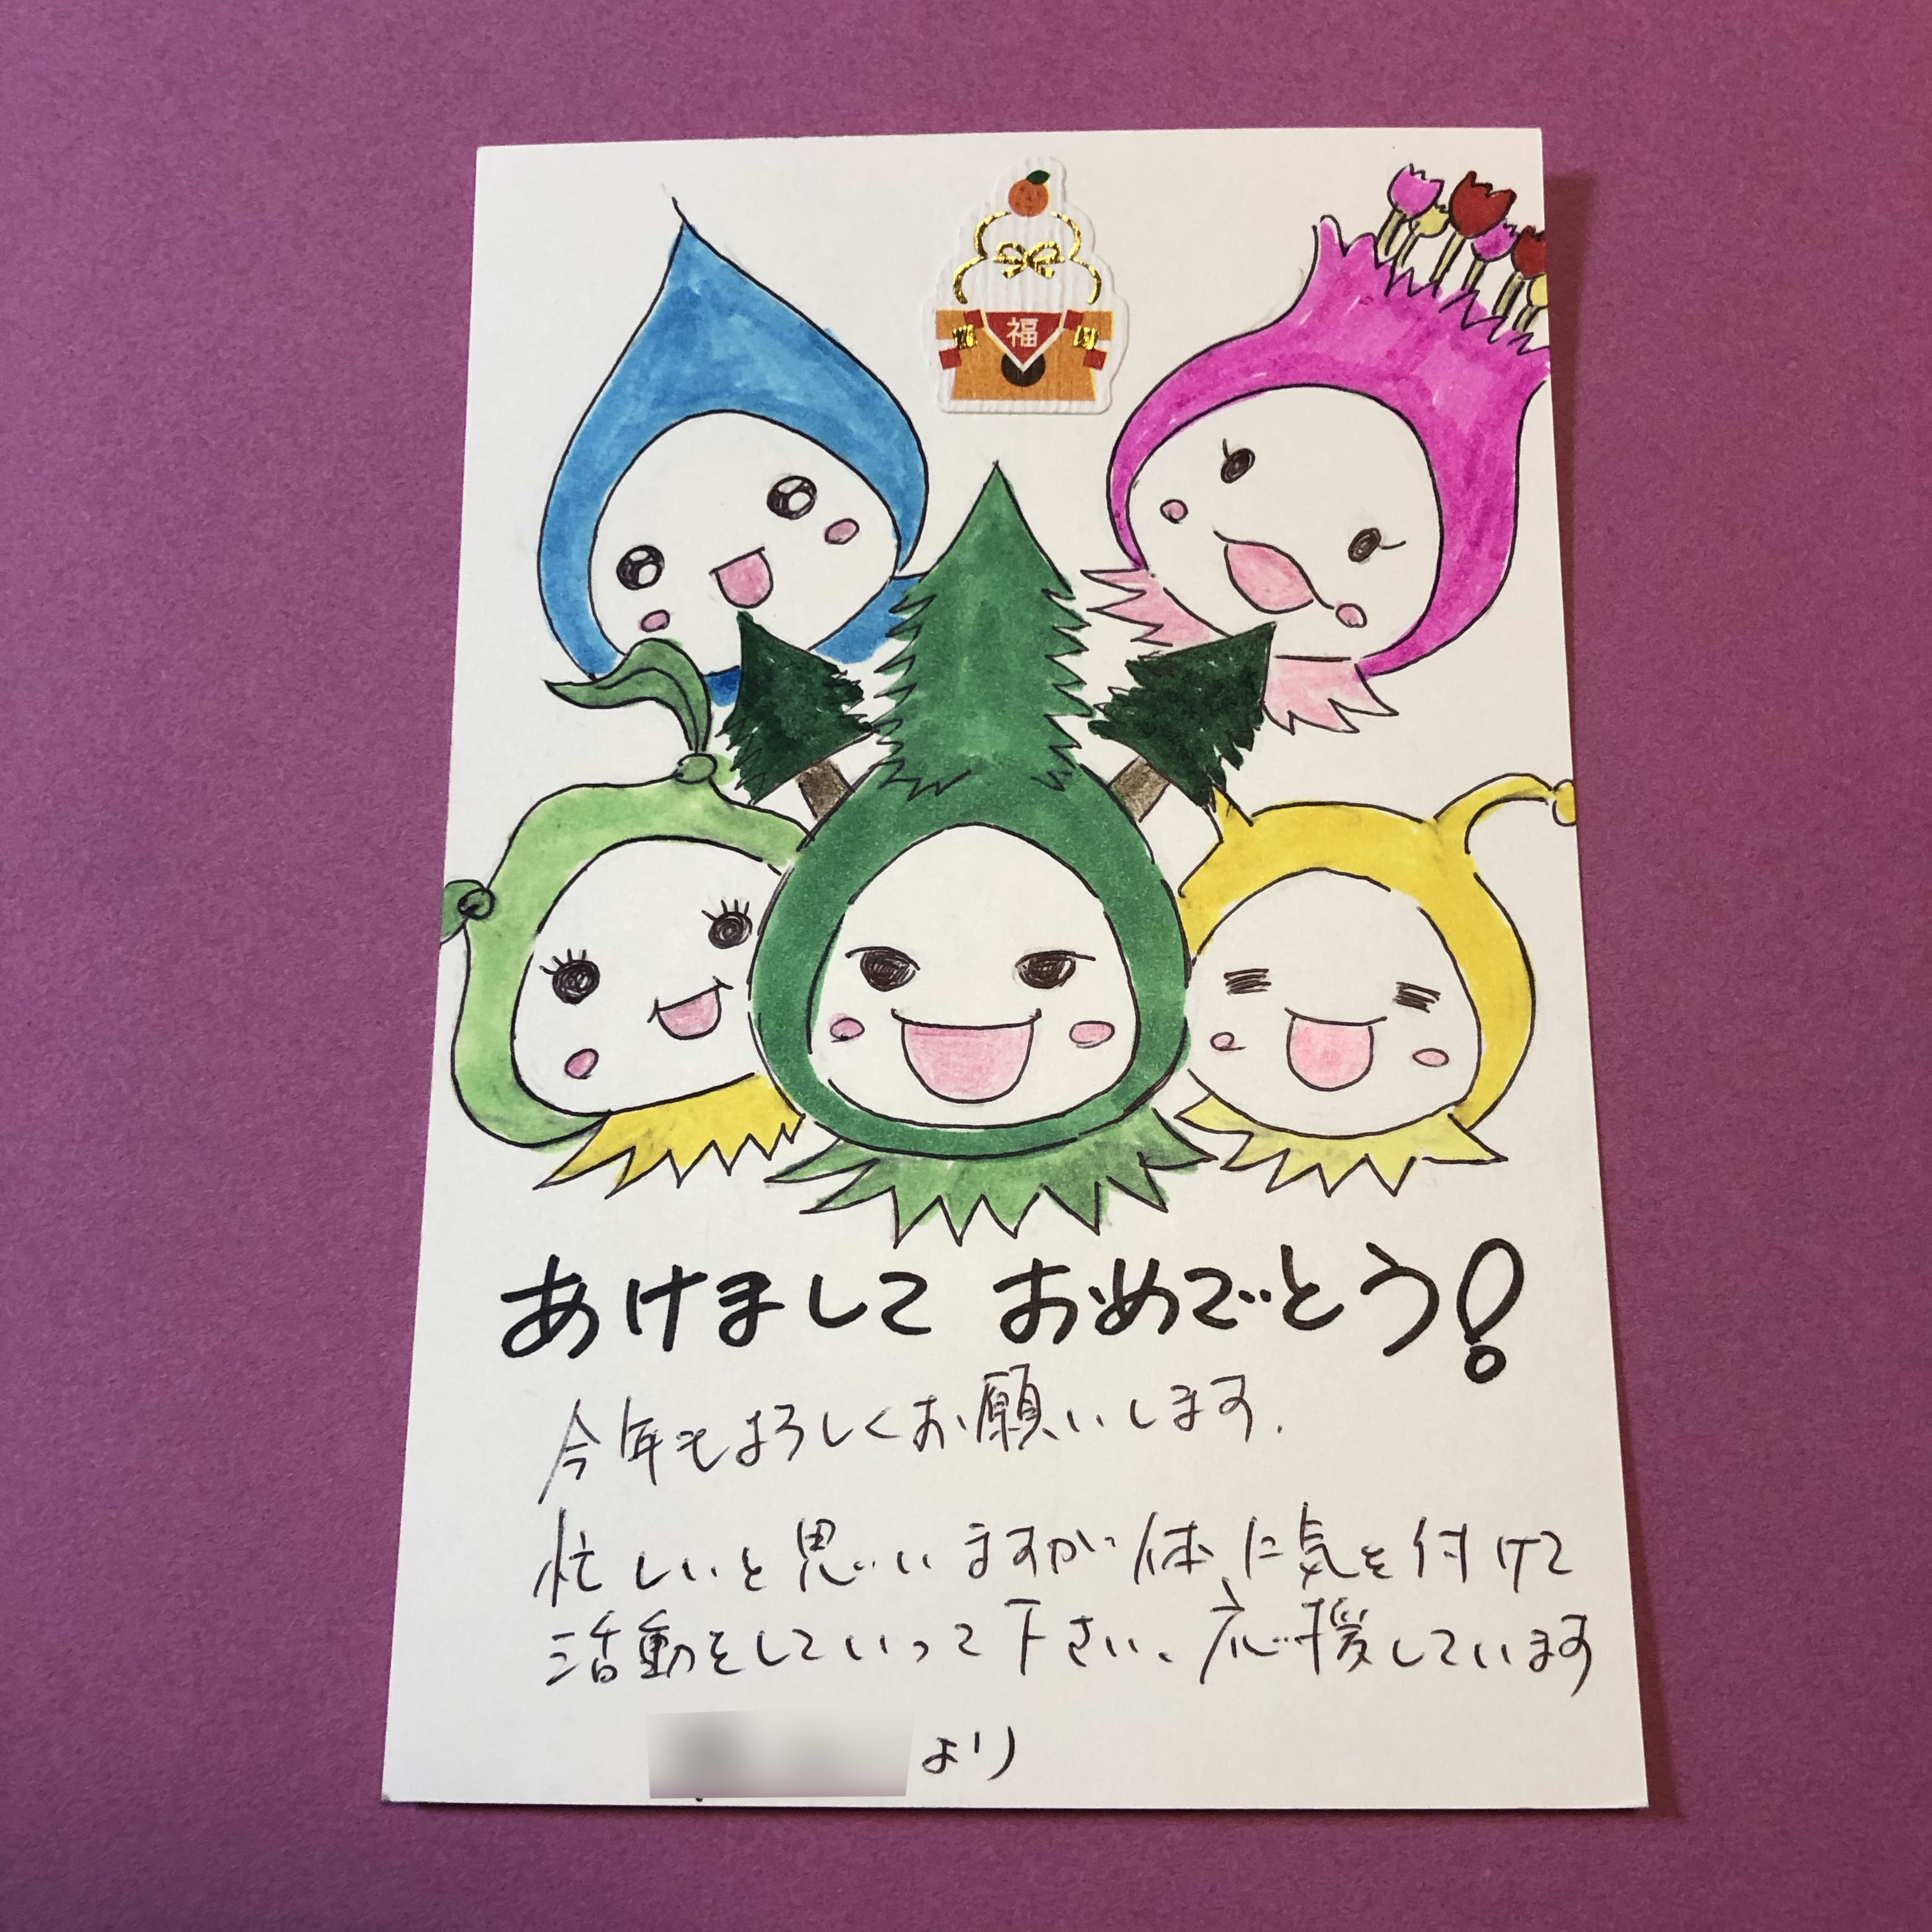 福
あけまして おめでとう!
今年もよろしくお願いします.
忙しいと思いますが体に気を付けて
活動をしていって下さい、応援しています
より